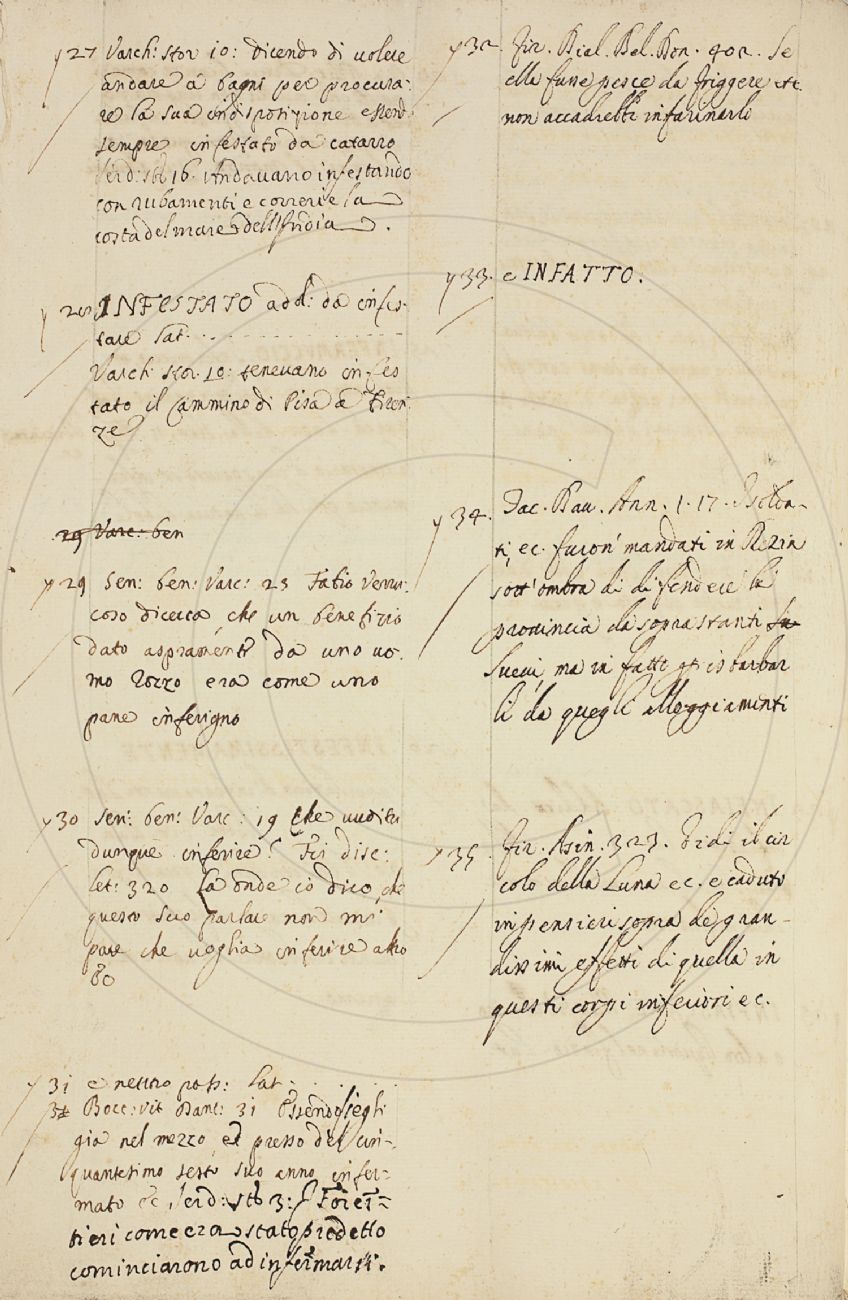 27 Varch: stor 10: dicendo di volere
andare a bagni per procura-
re la sua indisposizione essend.
sempre infestato da catarro
Serd: st: 16. Andavano infestando
con rubamenti e correrie la
costa del mare dell'India.
28 INFESTATO add: da infes-
tare Lat.
Varch. stor. 10: tenevano infes
tato il cammino di Pisa a Firen.
ze
29 Varc: ben
29 Sen: ben: Varc: 23 Fabio Verru:
coso diceva, che un benefizio
dato aspramente da uno uo.
mo rozzo era come uno
pane inferigno
30 Sen: ben: Varc: 19 Che vuoi tu
dunque inferire? Fir disc:
let: 320 La onde ciò dico, che
questo suo parlare non mi
pare che voglia inferire altro
&c
31 e neutro pass: Lat.
31 Bocc: vit Dant: 31 Essendosegli
già nel mezzo, ed presso del cin-
quantesimo sesto suo anno infer-
mato &c Serd: st: 3: Fores-
tieri come era stato predetto
cominciarono ad infermarsi.
32. Fir. Dial. Bel. Don. 402. Se
ella fusse pesce da friggere etc.
non accadrebbe infarinarlo
33. e INFATTO.
34. Dav. Ann. 1. 17.
ti, ec. furon' mandati in Rezia
sott'ombra di difendere la
provincia da soprastanti Su
Suevi, ma in fatto p isbarbar
li da quegli alleggiamenti
35. Fir. Asin. 323. Vidi il cir
colo della Luna ec. e caduto
in pensieri sopra de' gran-
dissimi effetti di quella in
questi corpi inferiori ec.